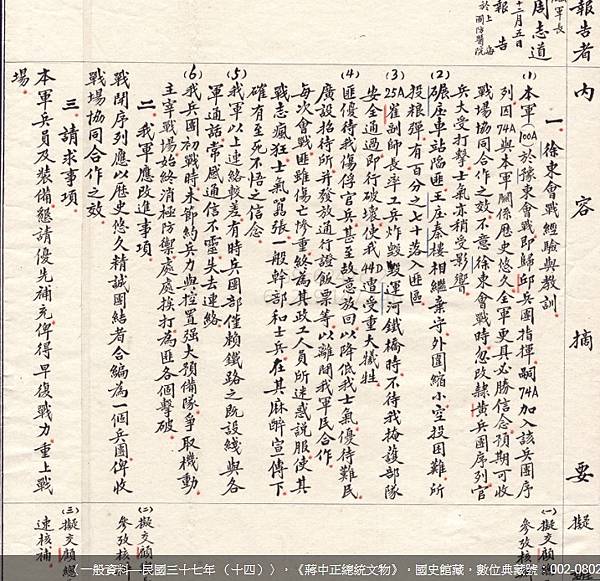 報告者
軍長
周志道
十二月五日
報告
於上海
國防醫院
內容摘要
一、徐東會戰經驗與教訓
(1)本軍(100A)於豫東會戰即歸邱兵團指揮嗣74A加入該兵團序
列因74A與本軍關係歷史悠久全軍更具必勝信念預期可收
戰場協同合作之效不意徐東會戰時忽改隸黃兵團序列官
兵大受打擊士氣亦稍受影響
(2)碾庄車站陷匪王庄秦樓相繼棄守外圍縮小空投困難所
投糧彈有百分之七十落入匪區
(3)25A崔副師長率工兵炸毀運河鐵橋時不待我掩護部隊
安全通過即行破壞使我44D遭受重大犧牲
(4)匪優待我傷俘官兵甚至故意放回以降低我士氣優待難民
廣設招待所并發放通行證飯票等以離間我軍民合作
每次會戰匪雖傷亡慘重終為其政工人員所迷惑說服使其
戰志瘋狂士氣囂張一般幹部和士兵在其麻醉宣傳下
確有至死不悟之信念
(5)我軍以上連絡較差有時兵團部僅賴鐵路之既設綫與各
軍通話常感通信不靈失去連絡
(6)我兵團初戰時未節約兵力與控置强大預備隊爭取機動
主宰戰場始終消極防禦處處挨打為匪各個擊破
二、我軍應改進事項
戰鬥序列應以歷史悠久精誠團結者合編為一個兵團俾收
戰場協同合作之效
三、請求事項
本軍兵員及裝備懇請優先補充俾得早復戰力重上戰
場
擬
(一)擬交顧總
參攷核
(二)擬交顧總
參攷核
(三)擬交顧總
速核補
一般資料—民國三十七年（十四）〉，《蔣中正總統文物》，國史館藏，數位典藏號：002-0802